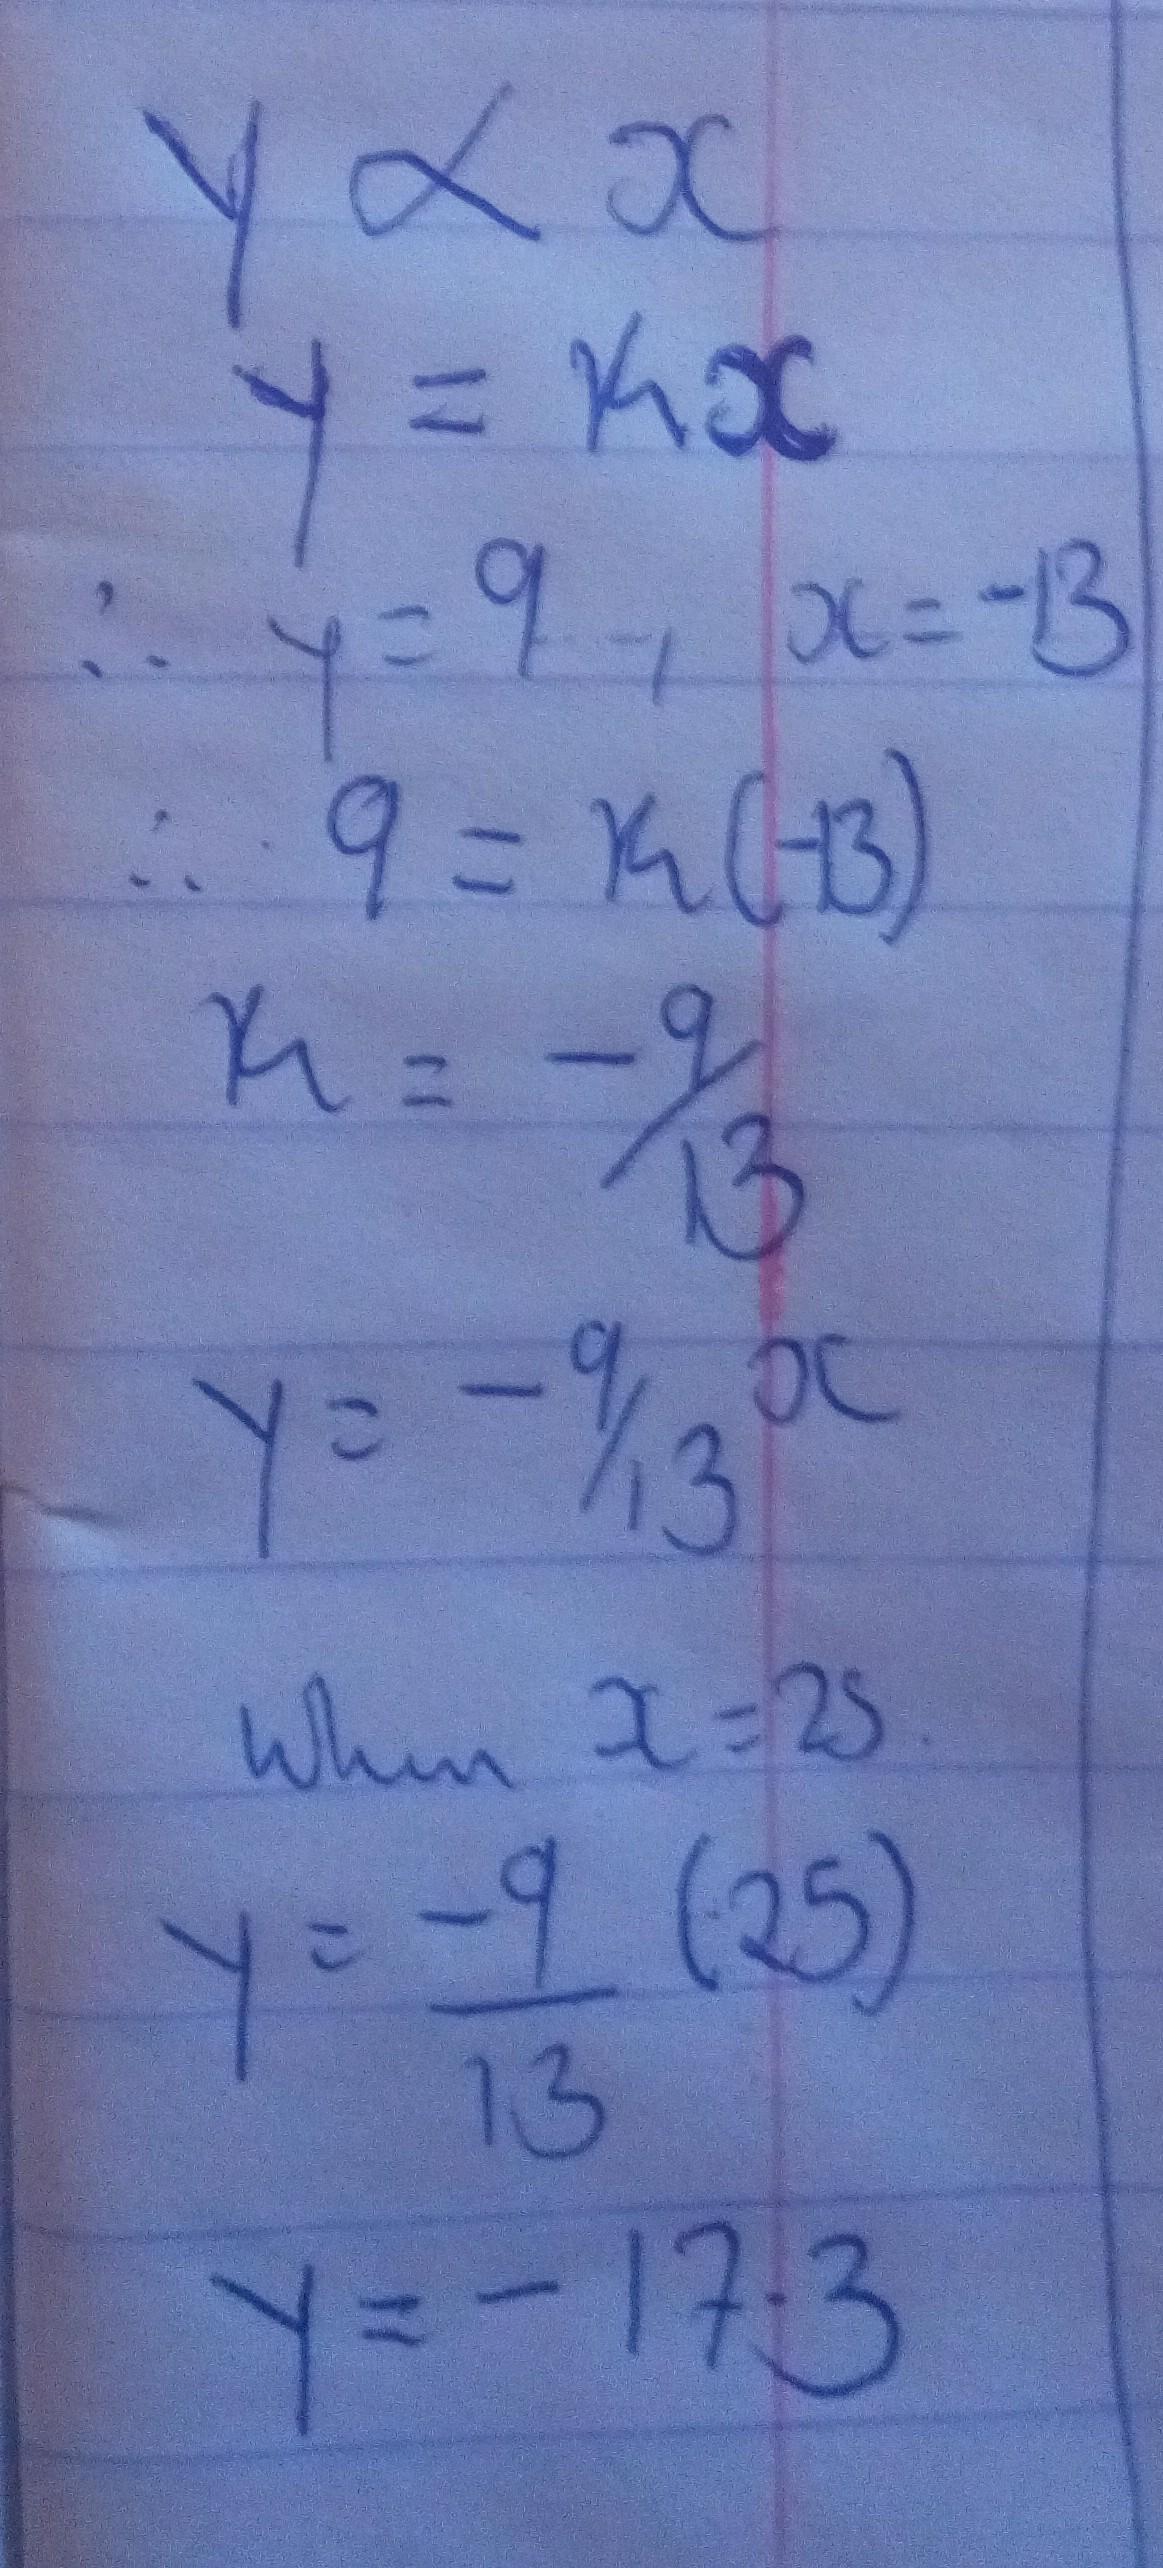 y ∝ x
y = kx
∴ y = 9, x = -13
∴ 9 = k(-13)
k = -9/13
y = -9/13 x
When x = 25.
y = -9/13 (25)
y = -17.3